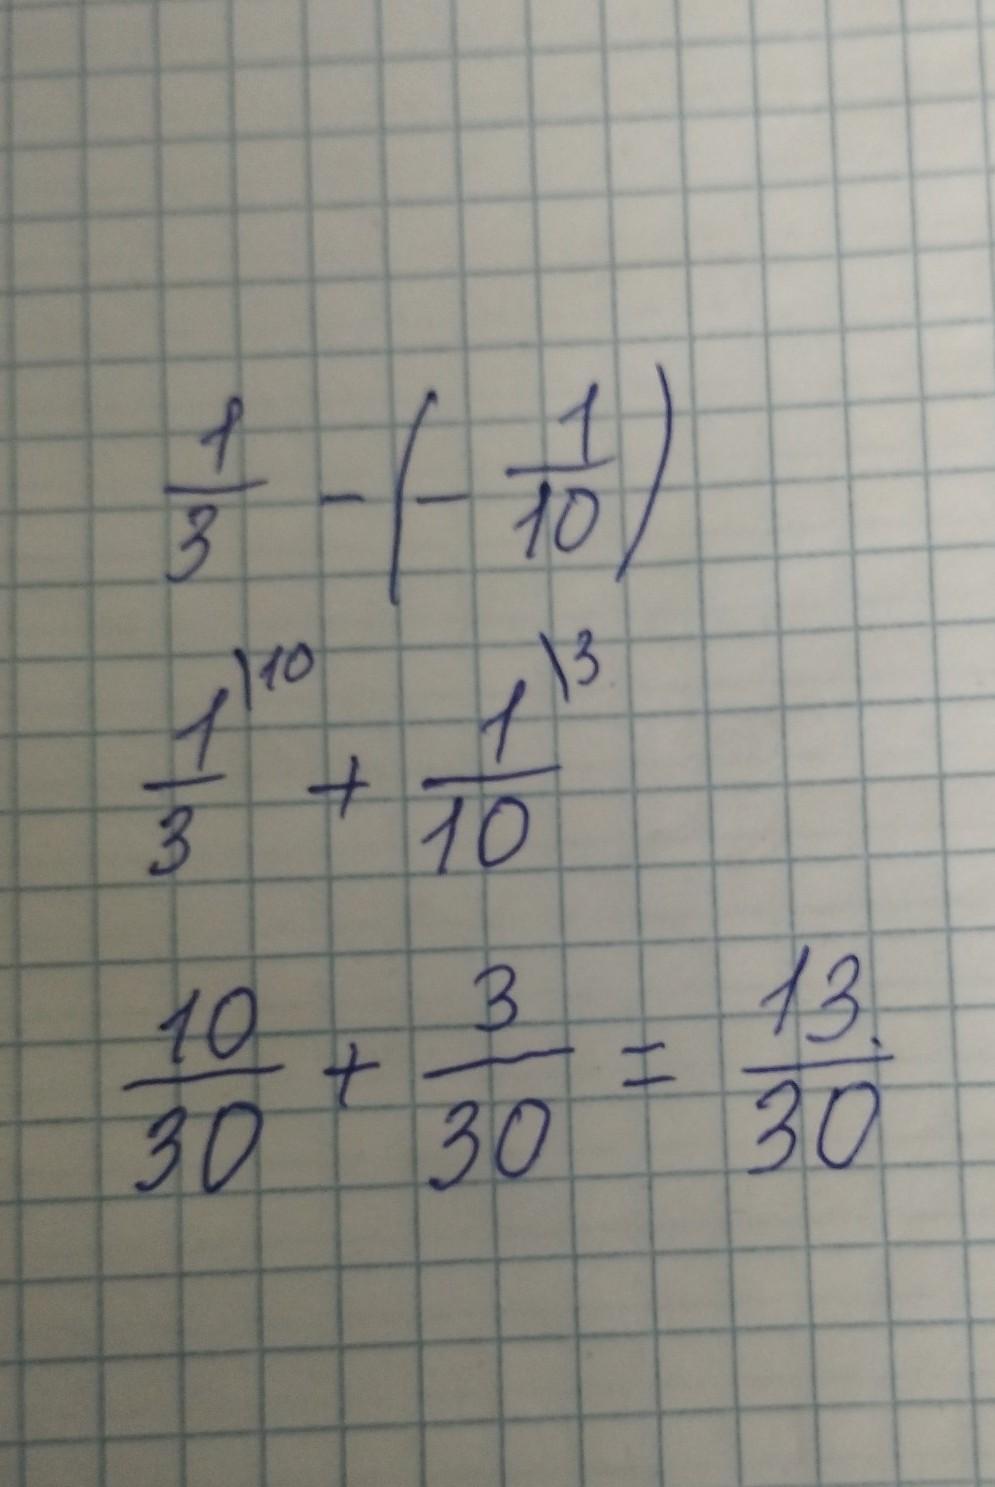 1/3 - (- 1/10)
1\10/3 + 1\3/10
10/30 + 3/30 = 13/30